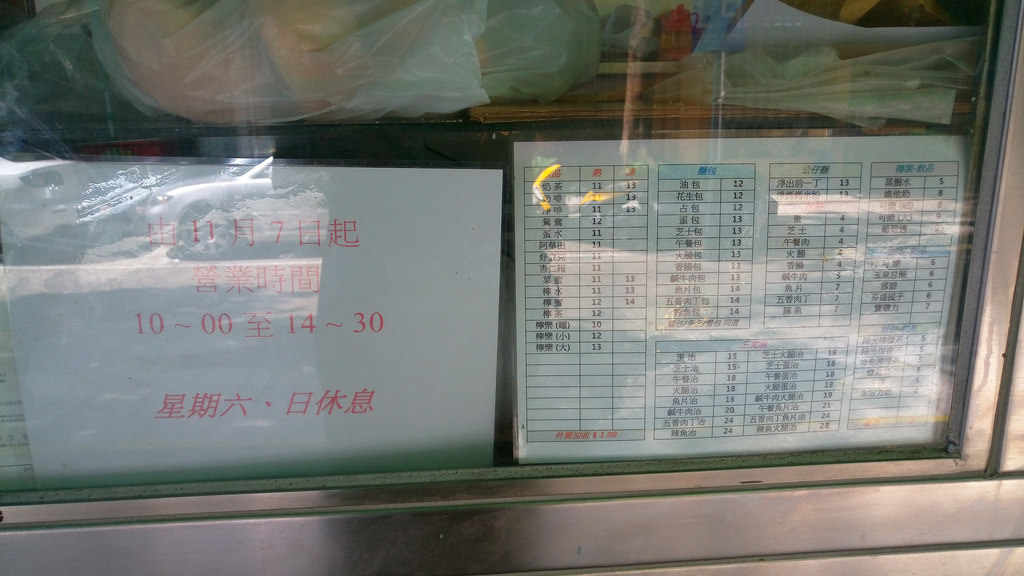 由 11 月 7 日起
營業時間
10 ~ 00 至 14 ~ 30
星期六、日休息
品 熱 凍
奶茶 11 13
啡 11 13
啡 11 13
鴛鴦 12
蛋水 11
阿華田 11
好立克 11
杏仁霜 11
菜蜜 11 13
檸水 11 13
檸蜜 12 14
檸茶 12
檸樂 (罐) 10
檸樂 (小) 12
檸樂 (大) 13
外賣加收 $ 1.00
麵包
油包 12
花生包 12
占包 12
蛋包 13
芝士包 13
午餐包 13
火腿包 13
香腸包 13
鹹牛肉包 13
魚片包 14
五香肉丁包 14
鯪魚包 14
公仔麵
淨出前一丁 13
13
蛋 4
芝士 4
午餐肉 4
火腿
香腸
鹹牛肉 5
魚片 7
五香肉丁 7
鯪魚 7
蒸餾水 5
維他奶 8
可樂 (大) 9
6
6
6
芬達提子 6
寶礦力 7
三文治
蛋治 15 芝士火腿治 18
芝士治 15 芝士蛋治 18
午餐治 18 午餐蛋治 18
火腿治 18 火腿蛋治 19
魚片治 18 鹹牛肉火腿治 19
鹹牛肉治 20 午餐魚片治 21
五香肉丁治 24 五香肉丁魚片治 24
鯪魚治 24 鯪魚火腿治 24